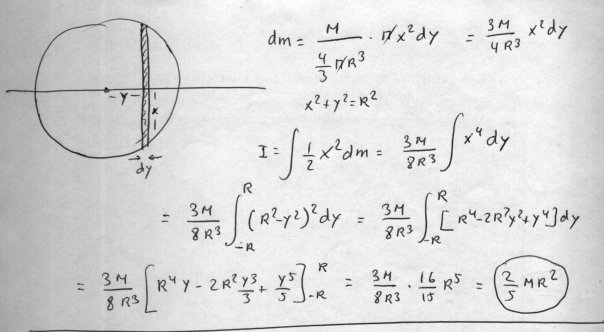 dm = M / (4/3 π R³) · π x² dy = 3M / 4R³ x² dy
x² + y² = R²
- y -
x
dy
I = ∫ 1/2 x² dm = 3M / 8R³ ∫ x⁴ dy
= 3M / 8R³ ∫_{-R}^{R} (R² - y²)² dy = 3M / 8R³ ∫_{-R}^{R} [R⁴ - 2R²y² + y⁴] dy
= 3M / 8R³ [R⁴ y - 2R² y³/3 + y⁵/5]_{-R}^{R} = 3M / 8R³ · 16/15 R⁵ = 2/5 MR²